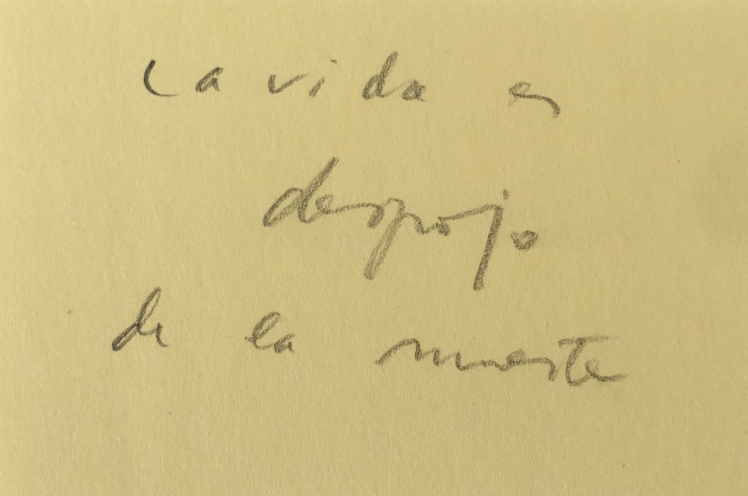 La vida es
despojo
de la muerte